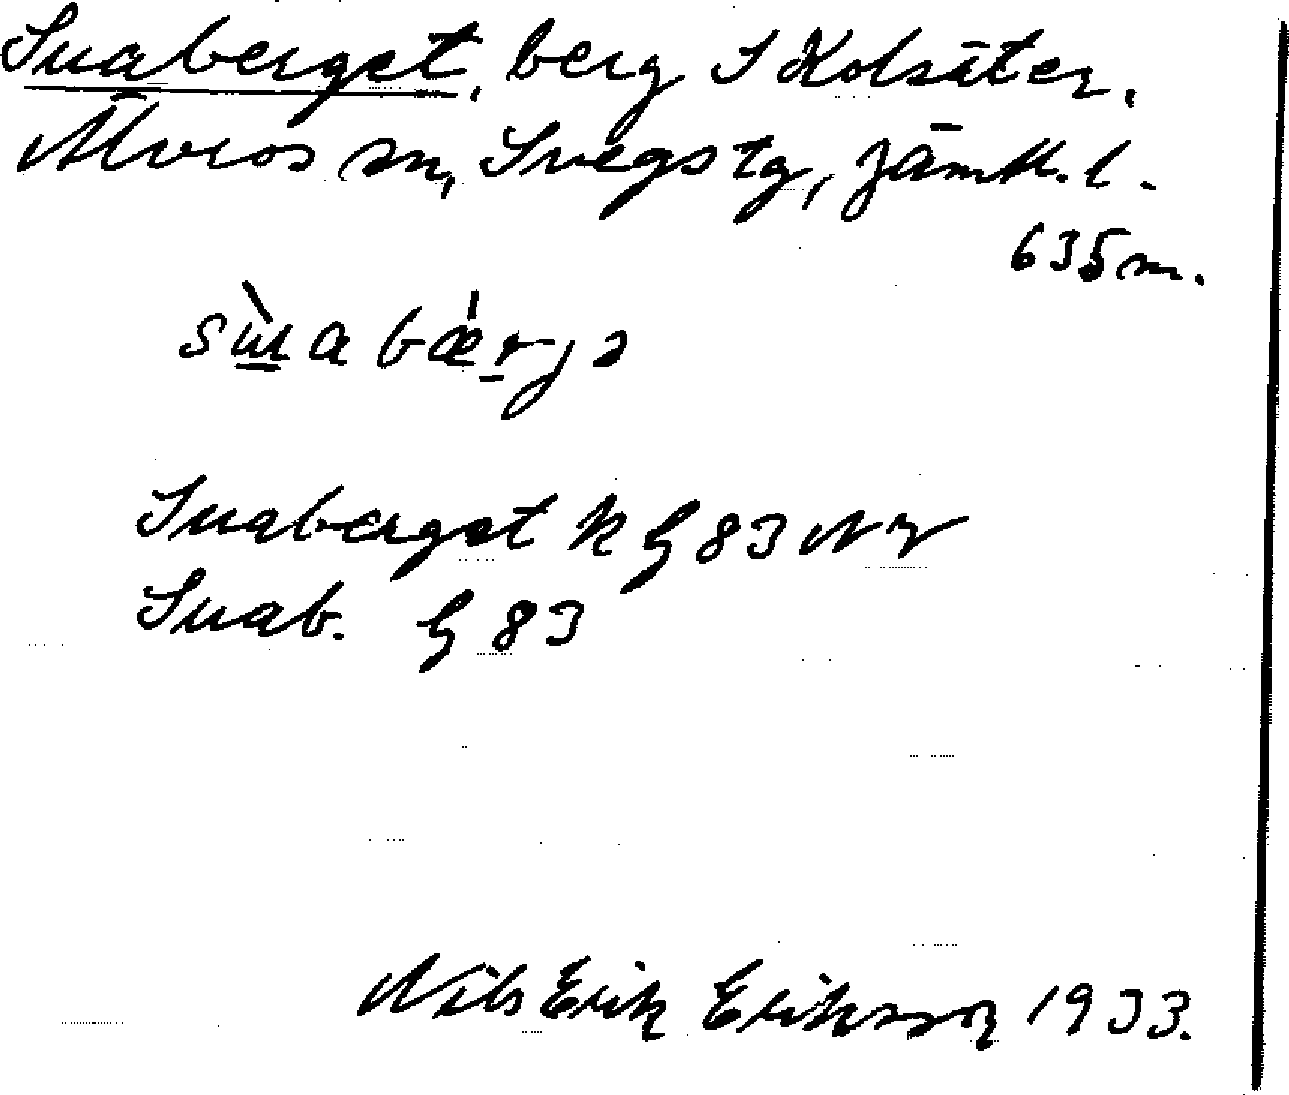 Suaberget, berg S Kolsäter,
Älvros sn, Svegs tg, Jämtl. l.
635 m.
Suaberget k G 83 NV
Suab. G 83
Nils Erik Eriksson 1933.